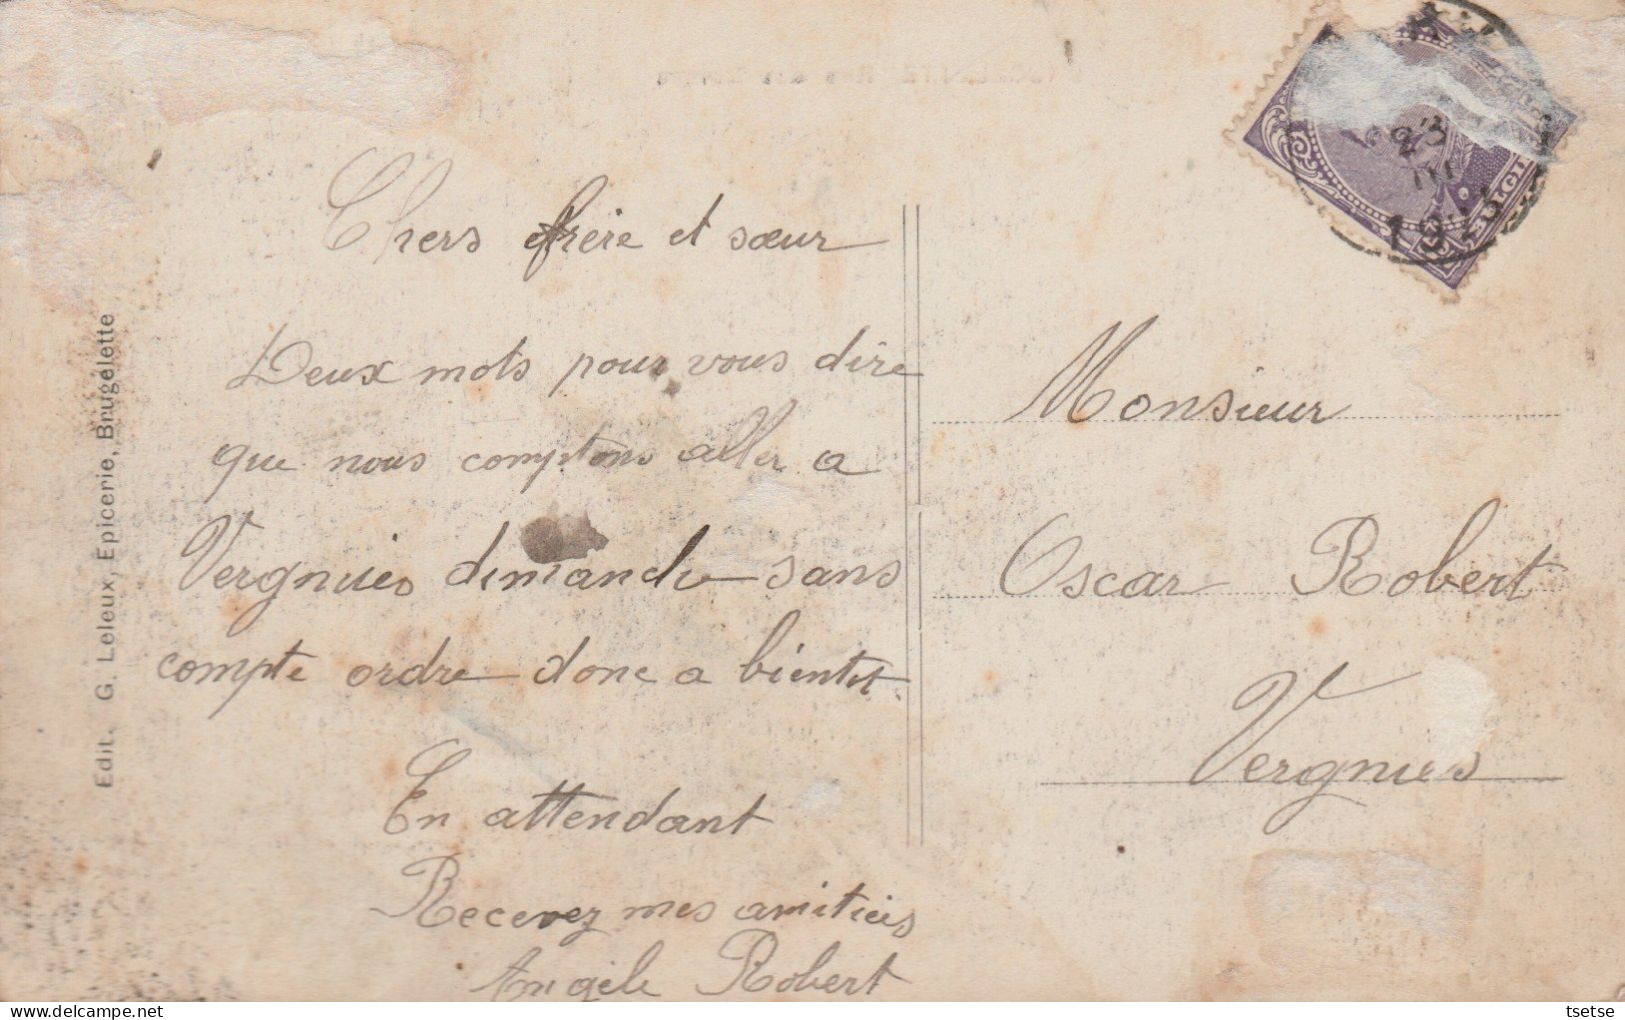 Chers frère et sœur
Deux mots pour vous dire
que nous comptons aller a
Vergnies dimanche sans
compte ordre donc a bientot
En attendant
Recevez mes amitiés
Angèle Robert
Monsieur
Oscar Robert
Vergnies
Edit. G. Leleux, Epicerie, Brugelette
23
III
tsetse